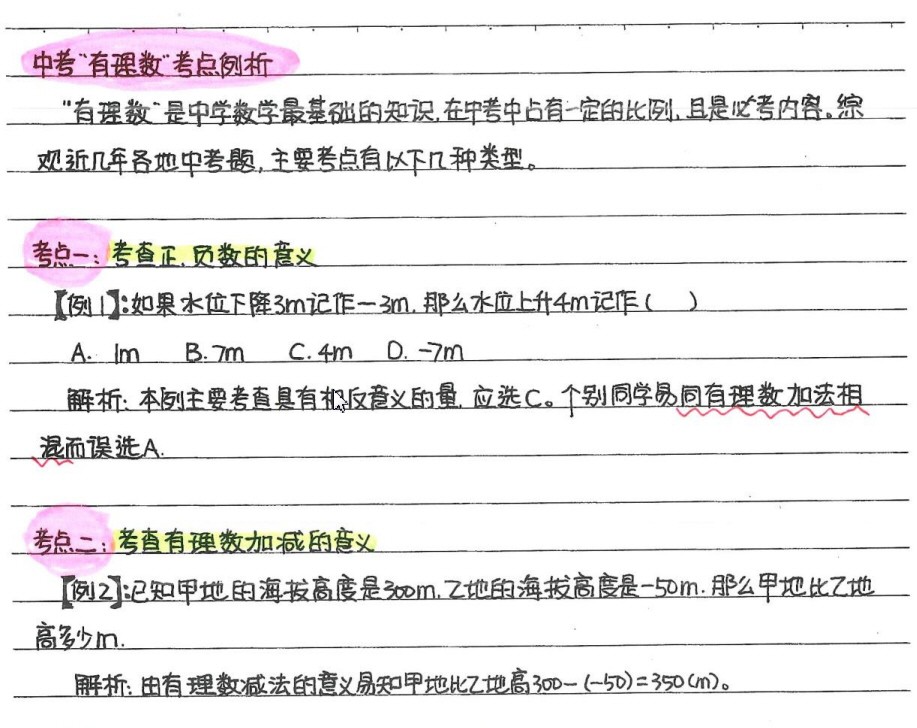 中考“有理数”考点例析
“有理数”是中学数学最基础的知识,在中考中占有一定的比例,且是必考内容。综
观近几年各地中考题,主要考点有以下几种类型。
考点一:考查正.负数的意义
【例1】:如果水位下降3m记作-3m.那么水位上升4m记作( )
A. 1m B.7m C.4m D. -7m
解析:本例主要考查具有相反意义的量.应选C。个别同学易同有理数加法相
混而误选A.
考点二:考查有理数加减的意义
【例2】:已知甲地的海拔高度是300m.乙地的海拔高度是-50m.那么甲地比乙地
高多少m.
解析:由有理数减法的意义易知甲地比乙地高300-(-50)=350(m)。